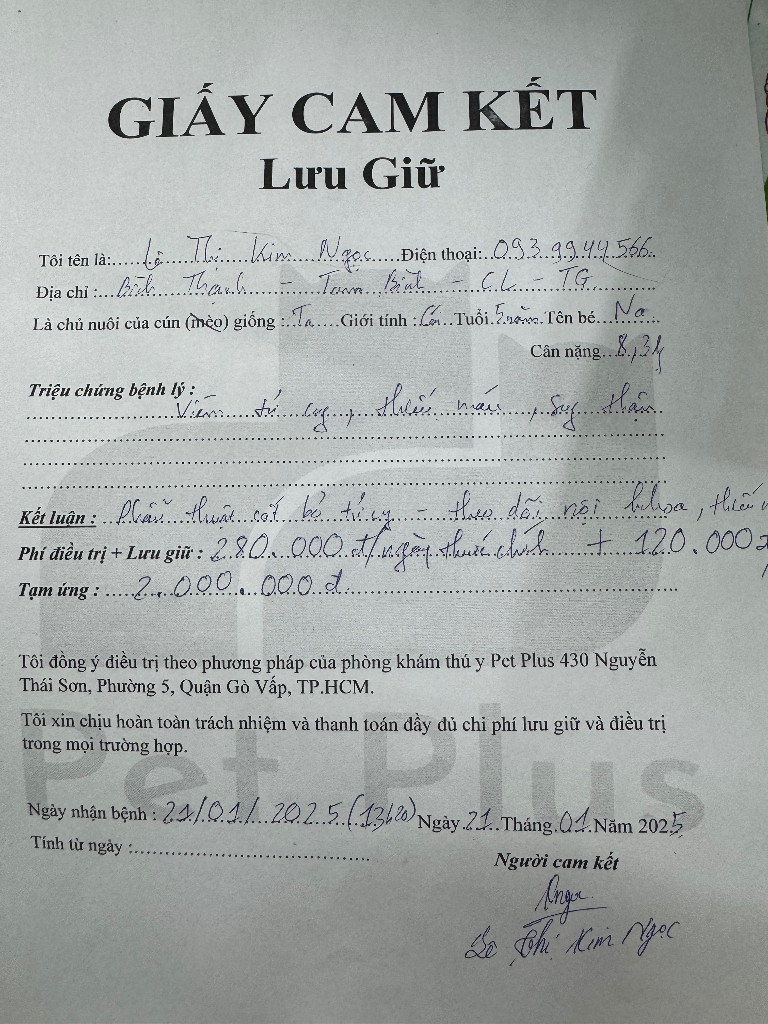 GIẤY CAM KẾT
Lưu Giữ
Tôi tên là:.....Lê Thị Kim Ngọc....Điện thoại:.093.9944.566.
Địa chỉ :..Bình Thạnh - Tam Bình - CL - TG.........
Là chủ nuôi của cún (mèo) giống :..Ta.....Giới tính :.Cái..Tuổi.5 năm.Tên bé...Na....
Cân nặng...8,3kg
Triệu chứng bệnh lý :
Viêm tử cung, thiếu máu, Suy thận
Kết luận : Phẫu thuật cắt bỏ tử cung - theo dõi nội khoa, thiếu
Phí điều trị + Lưu giữ : 280.000 đ/ngày thuốc chính + 120.000đ
Tạm ứng : ....2.000.000 đ.....
Tôi đồng ý điều trị theo phương pháp của phòng khám thú y Pet Plus 430 Nguyễn
Thái Sơn, Phường 5, Quận Gò Vấp, TP.HCM.
Tôi xin chịu hoàn toàn trách nhiệm và thanh toán đầy đủ chi phí lưu giữ và điều trị
trong mọi trường hợp.
Pet Plus
Ngày nhận bệnh : 21/01/2025 (13h20) Ngày.21..Tháng.01.Năm 2025
Tính từ ngày :..........................................
Người cam kết
Ngọc
Lê Thị Kim Ngọc